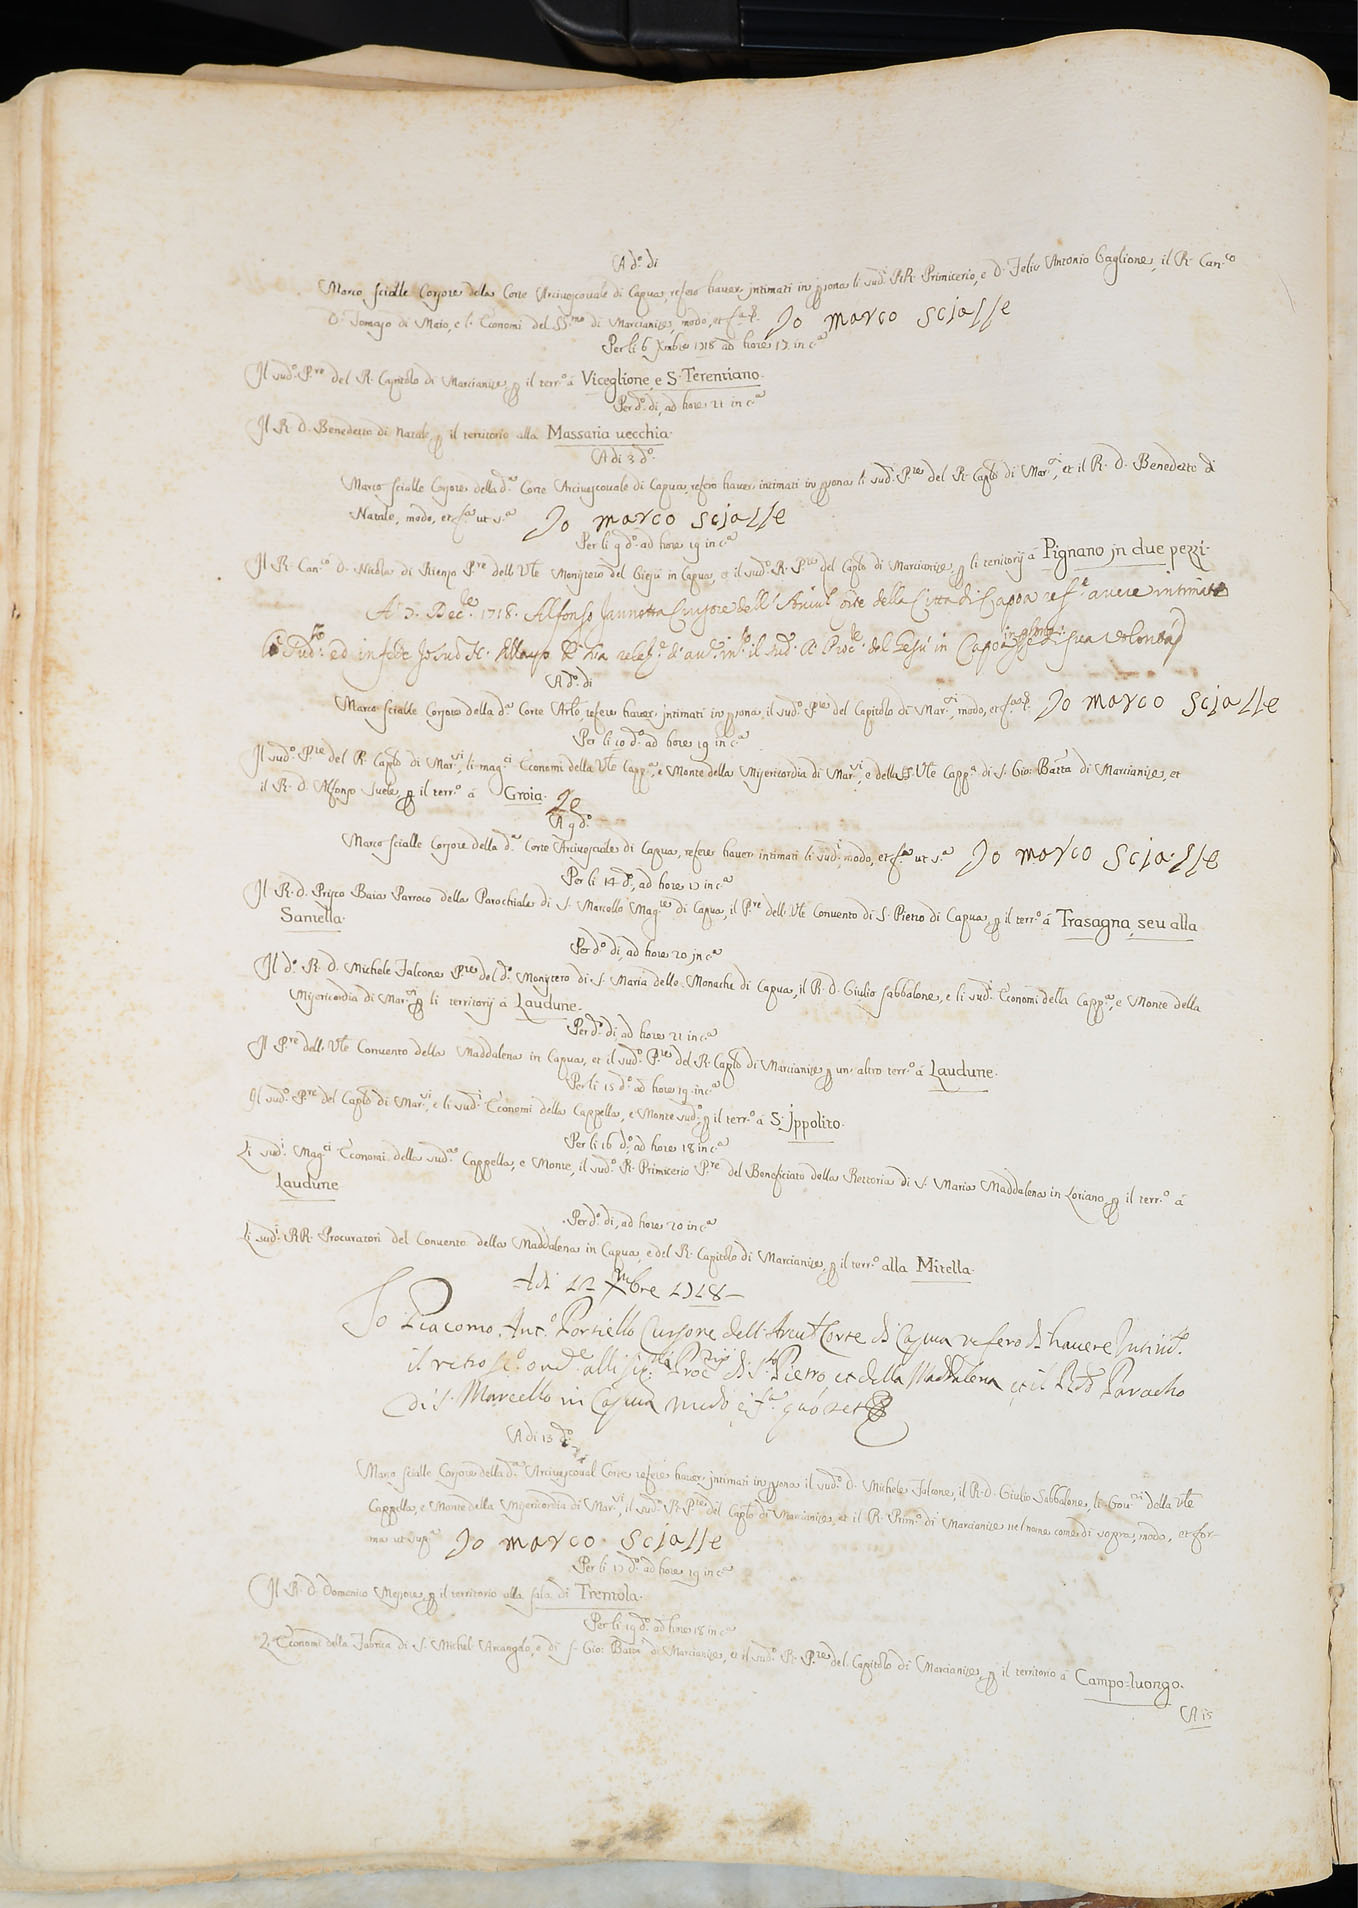 A dº di
Marco Scialle Corsore della Corte Arcivescovale di Capua, refero haver intimati in psona li sudⁱ RR. Primicerio, e D. Felix Antonio Gaglione, il R. Can.co
D. Tomaso di Maio, e li Economi del SS.mo di Marcianise, modo, et f.a Io marco scialle
Per li 6 Xmbre 1718 ad hore 17 in c.a
Il sud.º P.re del R. Capitolo di Marcianise, p il terr.º á Viceglione, e S. Terentiano.
Per d.º di, ad hore 21 in c.a
Il R. D. Benedetto di Natale, p il territorio alla Massaria vecchia.
A di 3 dº.
Marco Scialle Corsore della d.a Corte Arcivescovale di Capua, refero haver intimati in psona li sud.i P.re del R. Caplo di Mar.si, et il R. D. Benedetto di
Natale, modo, et f.a ut s.a Io marco scialle
Per li 9 d.º ad hore 19 in c.a
Il R. Can.co D. Nicola di Rienzo P.re dell Vle Monistero del Giesù in Capua, e il sud.º R. P.re del Caplo di Marcianise, p li territorij á Pignano in due pezzi.
A 7 Dec.e 1718. Alfonso Iannotta Cursore dell' Arciv.l Corte della Città di Capoa ref.e avere intimato
il sud.º R. Proc.e del Gesù in Capoa di sua volontà
A d.º di
Marco Scialle Corsore della d.a Corte Arle, refere haver intimati in psona, il sud.º P.re del Capitolo di Mar.si, modo, et f.a Io marco scialle
Per li 10 d.º ad hore 19 in c.a
Il sud.º P.re del R. Caplo di Mar.si, li mag.ci Economi della Vle Capp.a, e Monte della Misericordia di Mar.si, e della Vle Capp.a di S. Gio: Batta di Marcianise, et
il R. D. Alfonso p il terr.º á Groia.
A 9 d.º
Marco Scialle Corsore della d.a Corte Arcivescovale di Capua, refere haver intimati li sud.i, modo, et f.a ut s.a Io marco scialle
Per li 14 d.º, ad hore 17 in c.a
Il R. D. Prisco Baia Parroco della Parochiale di S. Marcello Mag.re di Capua, il P.re dell Vle Convento di S. Pietro di Capua, p il terr.º á Trasagna, seu alla
Saniella.
Per d.º di, ad hore 20 in c.a
Il d.º R. D. Michele Falcone P.re del d.º Monistero di S. Maria delle Monache di Capua, il R. D. Giulio Sabbalone, e li sud.i Economi della Capp.a, e Monte della
Misericordia di Mar.si p li territorij á Laudune.
Per d.º di, ad hore 21 in c.a
Il P.re dell Vle Convento della Maddalena in Capua, et il sud.º P.re del R. Caplo di Marcianise p un altro terr.º á Laudune.
Per li 15 d.º ad hore 19 in c.a
Il sud.º P.re del Caplo di Mar.si, e li sud.i Economi della Cappella, e Monte sud.º, p il terr.º á S. Ippolito.
Per li 16 d.º, ad hore 18 in c.a
Li sud.i Mag.ci Economi della sud.a Cappella, e Monte, il sud.º R. Primicerio P.re del Beneficiato della Rettoria di S. Maria Maddalena in Loriano, p il terr.º á
Laudune
Per d.º di, ad hore 20 in c.a
Li sud.i RR. Procuratori del Convento della Maddalena in Capua, e del R. Capitolo di Marcianise, p il terr.º alla Mirella.
Adi 12 Xmbre 1718
Io Giacomo Ant.º Portiello Cursore dell' Arciv.l Corte di Capua refero di havere Intim.to
il retro sc.º ord.e alli Proc.ri di S. Pietro et della Maddalena et il R.do Paracho
di S. Marcello in Capua modo, e f.a
A di 13 d.º
Marco Scialle Corsore della d.a Arcivescoval Corte refere haver intimati in psona il sud.º D. Michele Falcone, il R. D. Giulio Sabbalone, li Gov.ri della Vle
Cappella, e Monte della Misericordia di Mar.si, il sud.º R. P.re del Caplo di Marcianise, et il R. Prim.º di Marcianise nel nome come di sopra, modo, et for-
ma ut sup.a Io marco scialle
Per li 17 d.º ad hore 19 in c.a
Il R. D. Domenico Messore, p il territorio alla sala di Tremola.
Per li 19 d.º ad hore 18 in c.a
Li Economi della Fabrica di S. Michel Arcangelo, e di S. Gio: Batta di Marcianise, et il sud.º R. P.re del Capitolo di Marcianise, p il territorio á Campo-luongo.
A 15